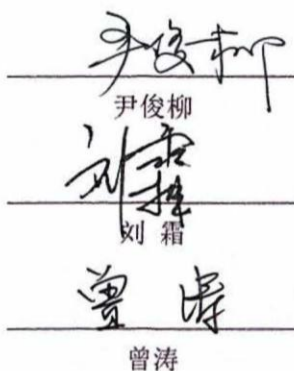 尹俊柳
尹俊柳
刘霜
刘 霜
曾涛
曾涛